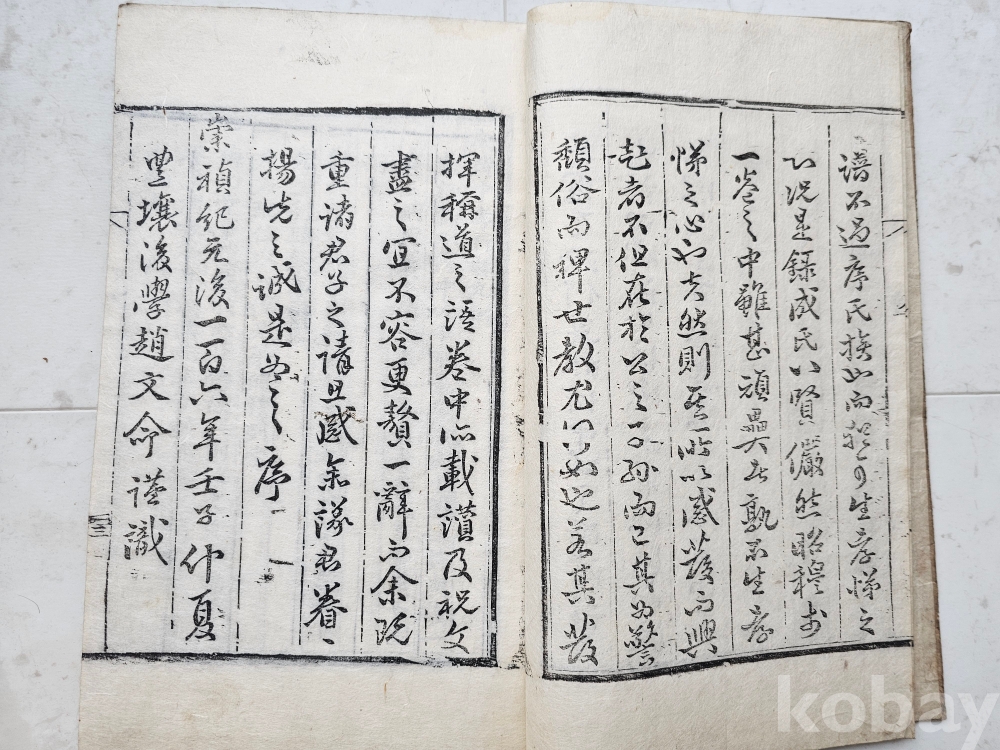 譜不過序氏族而猶可生孝悌之
心況是錄成氏八賢儼然昭穆於
一卷之中雖甚頑嚚者孰不生孝
悌之心也哉然則其所以感發而興
起者不但在於公之子孫而已其為警
頹俗而裨世教尤何如也若其發
揮稱道之語卷中所載讚及祝文
盡之宜不容更贅一辭而余既
重諸君子之請且感余漾君眷眷
揚先之誠是如之序
崇禎紀元後一百六年壬子仲夏
豊壤後學趙文命謹識
kobay